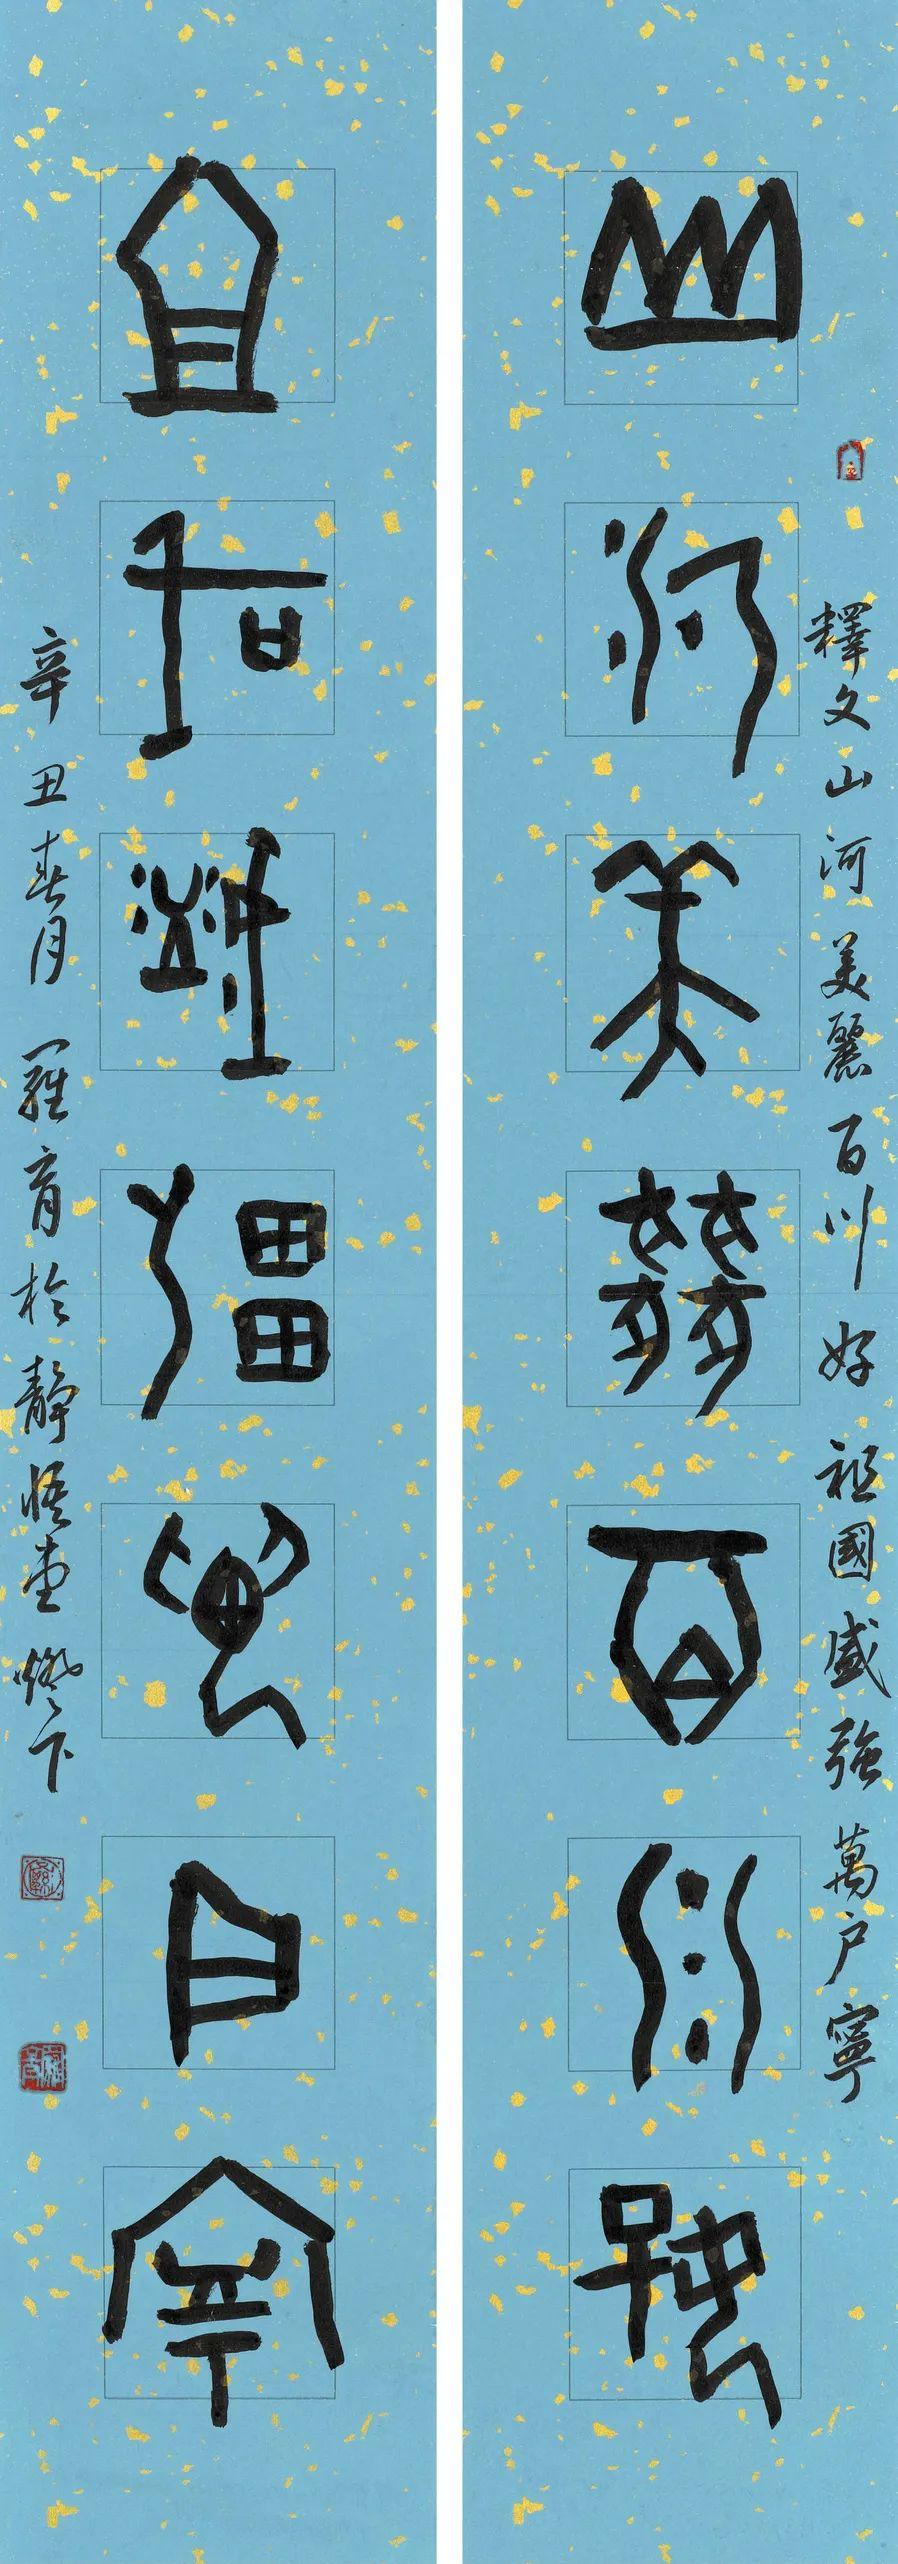 山河美麗百川好
釋文山河美麗百川好 祖國盛強萬戶寧
祖國盛強萬戶寧
辛丑春月 羅育於靜悟堂燈下